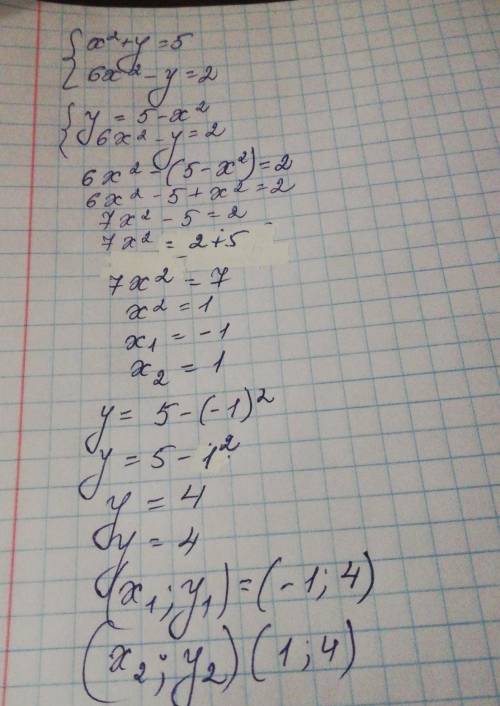 { x²+y=5
{ 6x²-y=2
{ y = 5-x²
{ 6x²-y=2
6x²-(5-x²)=2
6x²-5+x²=2
7x²-5=2
7x² = 2+5
7x² = 7
x² = 1
x₁ = -1
x₂ = 1
y = 5-(-1)²
y = 5-1²
y = 4
y = 4
(x₁; y₁)=(-1; 4)
(x₂; y₂)(1; 4)